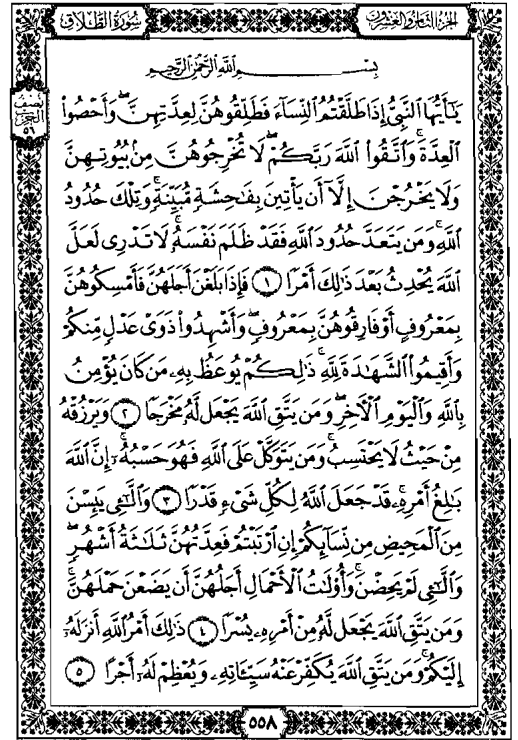 الجزء الثامن والعشرون
سورة الطلاق
نصف
الحزب
٥٦
بِسْمِ اللَّهِ الرَّحْمَٰنِ الرَّحِيمِ
يَٰٓأَيُّهَا النَّبِىُّ إِذَا طَلَّقْتُمُ النِّسَآءَ فَطَلِّقُوهُنَّ لِعِدَّتِهِنَّ وَأَحْصُوا۟
الْعِدَّةَ ۖ وَاتَّقُوا۟ اللَّهَ رَبَّكُمْ ۖ لَا تُخْرِجُوهُنَّ مِنۢ بُيُوتِهِنَّ
وَلَا يَخْرُجْنَ إِلَّآ أَن يَأْتِينَ بِفَٰحِشَةٍ مُّبَيِّنَةٍ ۚ وَتِلْكَ حُدُودُ
اللَّهِ ۚ وَمَن يَتَعَدَّ حُدُودَ اللَّهِ فَقَدْ ظَلَمَ نَفْسَهُۥ ۚ لَا تَدْرِى لَعَلَّ
اللَّهَ يُحْدِثُ بَعْدَ ذَٰلِكَ أَمْرًا ١ فَإِذَا بَلَغْنَ أَجَلَهُنَّ فَأَمْسِكُوهُنَّ
بِمَعْرُوفٍ أَوْ فَارِقُوهُنَّ بِمَعْرُوفٍ وَأَشْهِدُوا۟ ذَوَىْ عَدْلٍ مِّنكُمْ
وَأَقِيمُوا۟ الشَّهَٰدَةَ لِلَّهِ ۚ ذَٰلِكُمْ يُوعَظُ بِهِۦ مَن كَانَ يُؤْمِنُ
بِاللَّهِ وَالْيَوْمِ الْءَاخِرِ ۚ وَمَن يَتَّقِ اللَّهَ يَجْعَل لَّهُۥ مَخْرَجًا ٢ وَيَرْزُقْهُ
مِنْ حَيْثُ لَا يَحْتَسِبُ ۚ وَمَن يَتَوَكَّلْ عَلَى اللَّهِ فَهُوَ حَسْبُهُۥٓ ۚ إِنَّ اللَّهَ
بَٰلِغُ أَمْرِهِۦ ۚ قَدْ جَعَلَ اللَّهُ لِكُلِّ شَىْءٍ قَدْرًا ٣ وَالَّٰٓـِٔى يَئِسْنَ
مِنَ الْمَحِيضِ مِن نِّسَآئِكُمْ إِنِ ارْتَبْتُمْ فَعِدَّتُهُنَّ ثَلَٰثَةُ أَشْهُرٍ
وَالَّٰٓـِٔى لَمْ يَحِضْنَ ۚ وَأُو۟لَٰتُ الْأَحْمَالِ أَجَلُهُنَّ أَن يَضَعْنَ حَمْلَهُنَّ ۚ
وَمَن يَتَّقِ اللَّهَ يَجْعَل لَّهُۥ مِنْ أَمْرِهِۦ يُسْرًا ٤ ذَٰلِكَ أَمْرُ اللَّهِ أَنزَلَهُۥٓ
إِلَيْكُمْ ۚ وَمَن يَتَّقِ اللَّهَ يُكَفِّرْ عَنْهُ سَيِّـَٔاتِهِۦ وَيُعْظِمْ لَهُۥٓ أَجْرًا ٥
٥٥٨